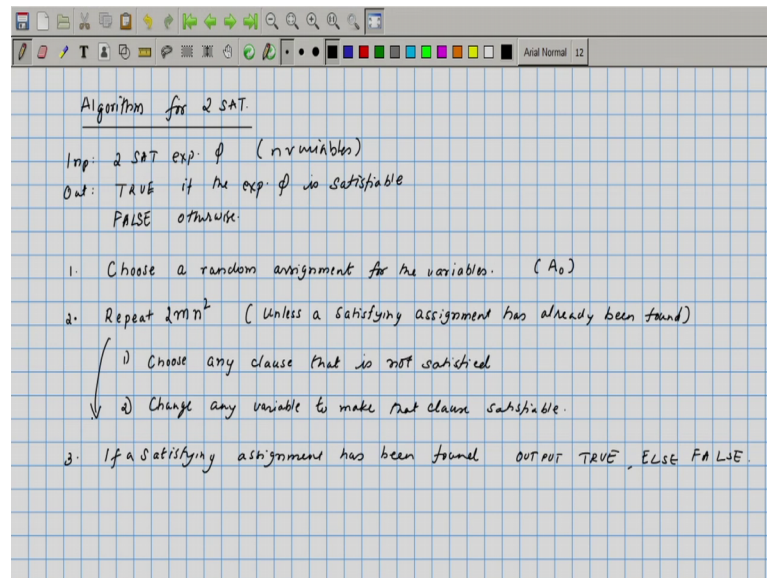 T
Arial Normal 12
Algorithm for 2 SAT.
Inp: 2 SAT exp. φ (n variables)
Out: TRUE if the exp. φ is satisfiable
FALSE otherwise.
1. Choose a random assignment for the variables. (A₀)
2. Repeat 2mn² (unless a satisfying assignment has already been found)
1) Choose any clause that is not satisfied
2) Change any variable to make that clause satisfiable.
3. If a satisfying assignment has been found OUTPUT TRUE, ELSE FALSE.